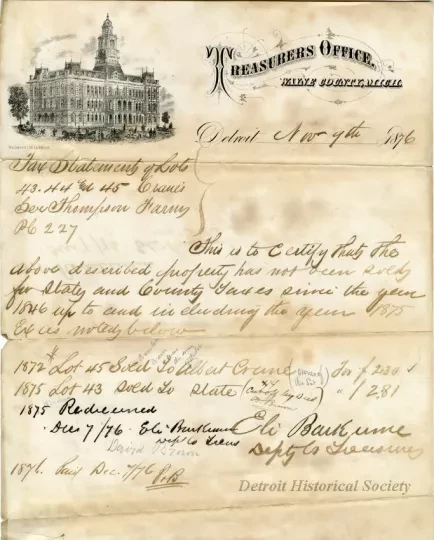 TREASURERS OFFICE,
WAYNE COUNTY, MICH.
Detroit Nov 9th 1876
Tax Statements of Lots
43. 44 & 45 Crane's
Sec Thompson Farm
PC 227
This is to Certify that the
above described property has not been sold
for State and County Taxes since the year
1846 up to and including the year 1875
Except as noted below
1872 Lot 45 Sold To Albert Crane For $ 2
1875 Lot 43 Sold To State " 1 281
1875 Redeemed
Dec 7/76 Eli Barkume
Dep Co Treas
Eli Barkume
Depty Co Treasurer
David
1876. Paid Dec. 7/76
Detroit Historical Society